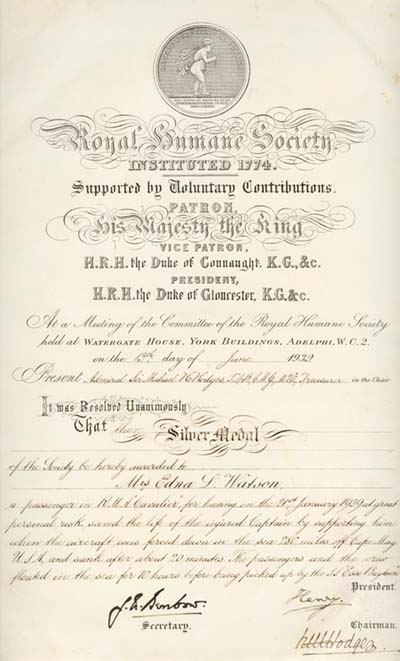 Royal Humane Society.
INSTITUTED 1774.
Supported by Voluntary Contributions.
PATRON,
His Majesty the King
VICE PATRON,
H.R.H. the Duke of Connaught, K.G., &c.
PRESIDENT,
H.R.H. the Duke of Gloucester, K.G. &c.
At a Meeting of the Committee of the Royal Humane Society
held at WATERGATE HOUSE, YORK BUILDINGS, ADELPHI, W.C.2.
on the day of June 1939
Present Admiral Sir Michael H. Hodges, Treasurer in the Chair
It was Resolved Unanimously
That the
Silver Medal
of the Society be hereby awarded to
Mrs Edna L. Watson
a passenger in R.M.A. "Cavalier", for having on the 21st January 1939 at great
personal risk saved the life of the injured Captain by supporting him
when the aircraft was forced down in the sea 280 miles off Cape May
U.S.A. and sank after about 20 minutes. The passengers and the crew
floated in the sea for 10 hours before being picked up by the
President.
Henry.
Secretary. Chairman.